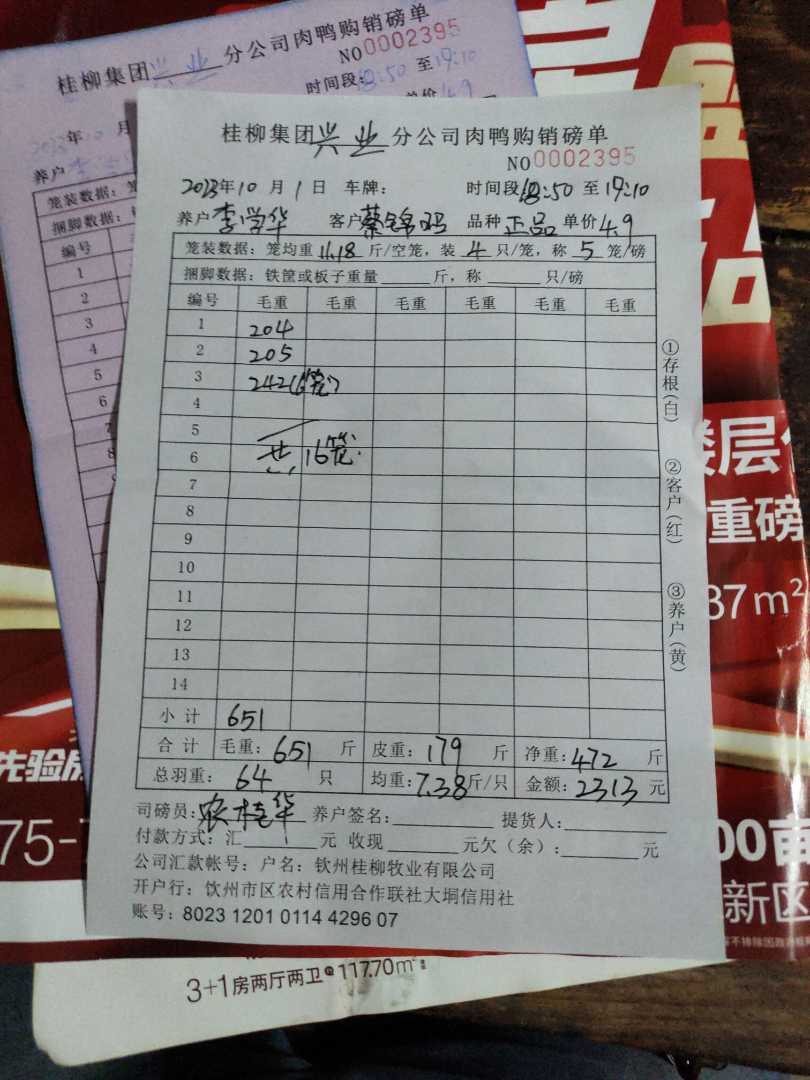 桂柳集团兴业分公司肉鸭购销磅单
NO0002395
时间段18:50至19:10
单价4.9
2023年10月
养户
笼装数据:笼
捆脚数据:
编号
1
2
3
4
5
6
7
8
9
桂柳集团兴业分公司肉鸭购销磅单
NO0002395
2023年10月1日 车牌: 时间段18:50至19:10
养户李学华 客户蔡锦 品种正品单价4.9
笼装数据:笼均重11.18斤/空笼,装4只/笼,称5笼/磅
捆脚数据:铁筐或板子重量 斤,称 只/磅
编号 毛重 毛重 毛重 毛重 毛重 毛重
1 204
2 205
3 242(6笼)
4
5
6 共16笼
7
8
9
10
11
12
13
14
小计 651
合计 毛重:651斤 皮重:179斤 净重:472斤
总羽重:64只 均重:7.38斤/只 金额:2313元
司磅员:农桂华 养户签名: 提货人:
付款方式:汇 元 收现 元欠(余): 元
公司汇款帐号:户名:钦州桂柳牧业有限公司
开户行:饮州市区农村信用合作联社大垌信用社
账号:8023 1201 0114 4296 07
①存根(白)
②客户(红)
③养户(黄)
楼层
重磅
37m²
00亩
新区
先验房
75-
3+1房两厅两卫 117.70m²